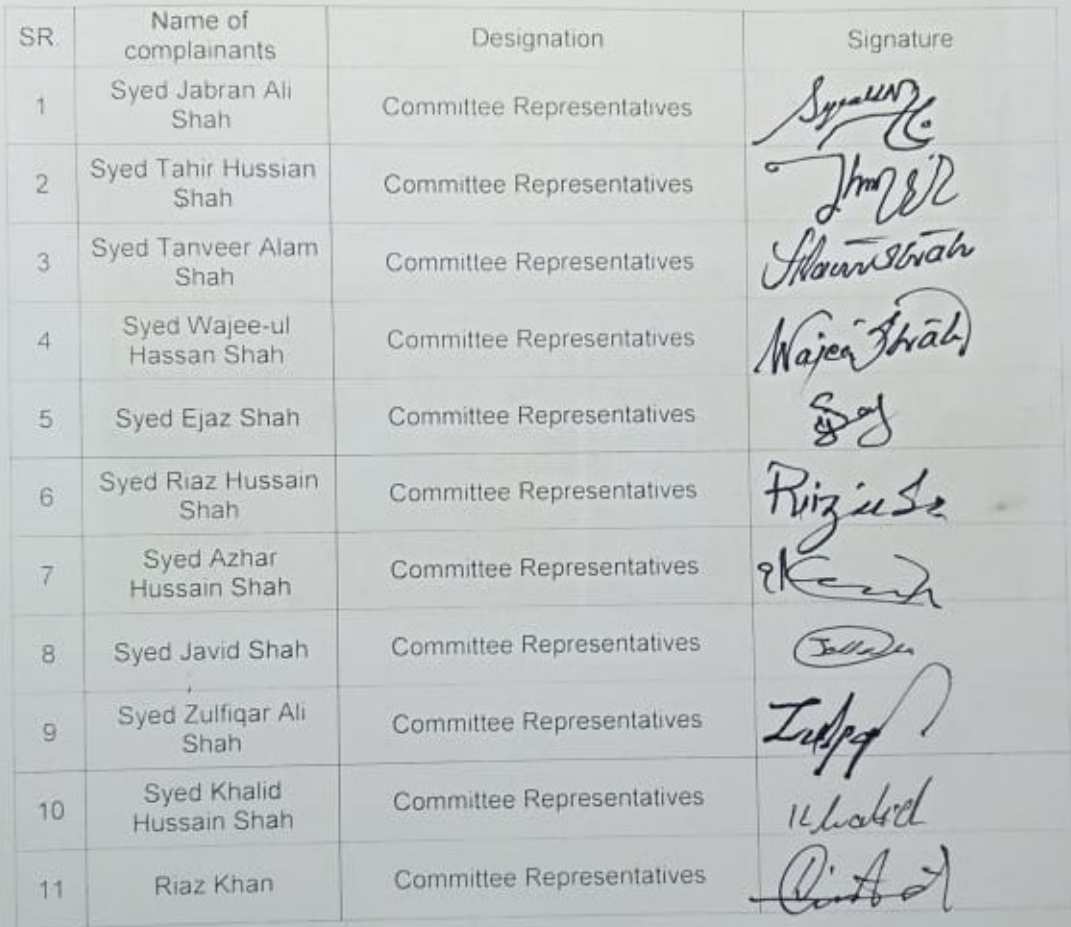 SR. Name of complainants Designation Signature
1 Syed Jabran Ali Shah Committee Representatives
2 Syed Tahir Hussian Shah Committee Representatives
3 Syed Tanveer Alam Shah Committee Representatives
4 Syed Wajee-ul Hassan Shah Committee Representatives Wajee Shah
5 Syed Ejaz Shah Committee Representatives
6 Syed Riaz Hussain Shah Committee Representatives
7 Syed Azhar Hussain Shah Committee Representatives
8 Syed Javid Shah Committee Representatives
9 Syed Zulfiqar Ali Shah Committee Representatives
10 Syed Khalid Hussain Shah Committee Representatives Khalid
11 Riaz Khan Committee Representatives